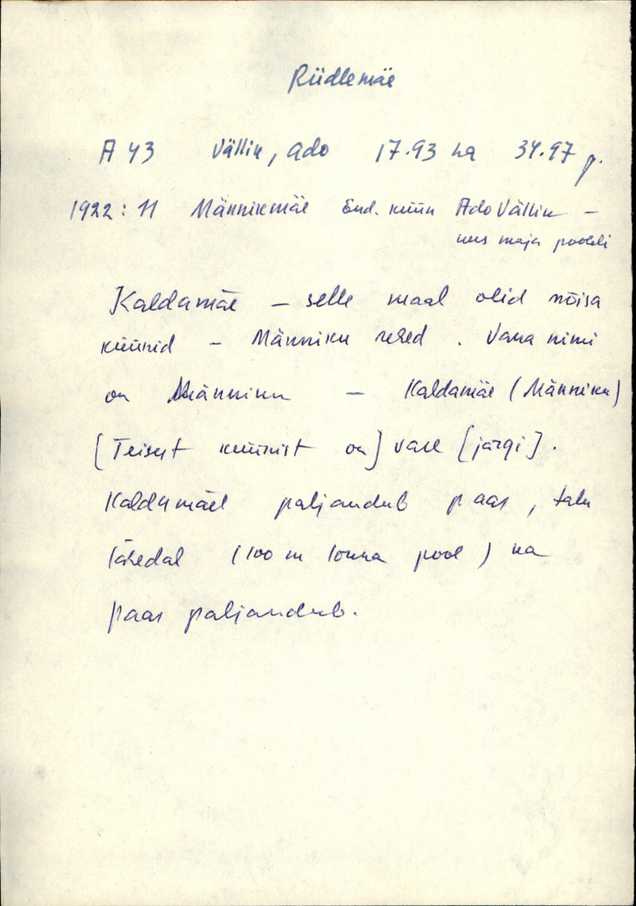 Riidlemäe
A 43 Vällin, Ado 17.93 ha 34.97 p.
1922: 11 Männikmäe End. küün Ado Vällin –
uus maja pooleli
Kaldamäe – selle maal olid mõisa
küünid – Männiku . Vana nimi
on Männiku – Kaldamäe (Männiku)
[Teisest küünist on] vare [järgi].
Kaldamäel paljandub paas, talu
lähedal (100 m lõuna pool) ka
paas paljandub.